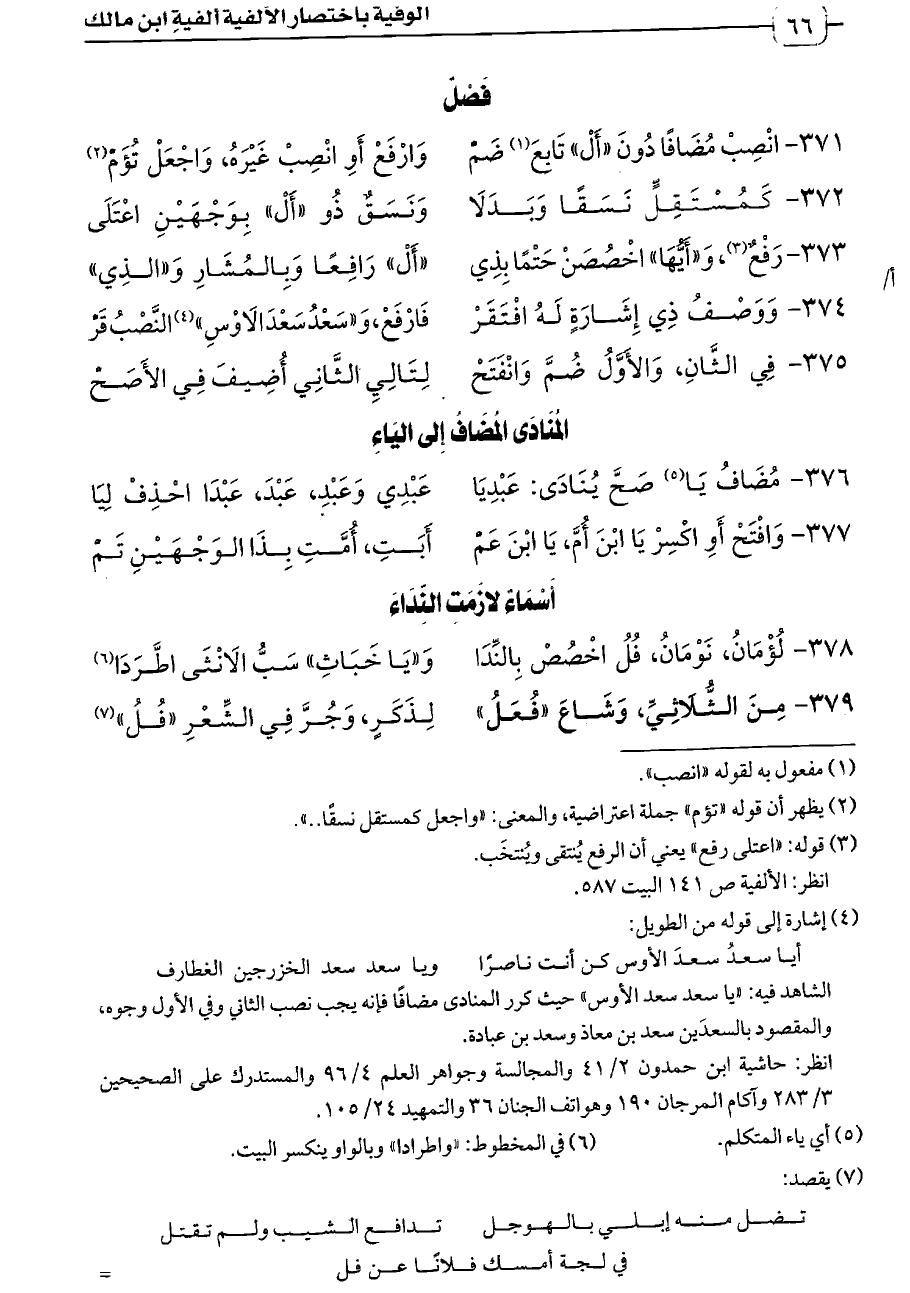 ٦٦ الوفية باختصار الألفية ألفيةِ ابن مالك
فَصْلٌ
٣٧١- انْصِبْ مُضَافًا دُونَ «أَل» تَابِعَ(١) ضَمْ وَارْفَعْ أَوِ انْصِبْ غَيْرَهُ، وَاجْعَلْ تُؤَمْ(٢)
٣٧٢- كَمُسْتَقِلٍّ نَسَقًا وَبَدَلَا وَنَسَقٌ ذُو «أَل» بِوَجْهَيْنِ اعْتَلَى
٣٧٣- رَفْعٌ(٣)، وَ«أَيُّهَا» اخْصُصَنْ حَتْمًا بِذِي «أَل» رَافِعًا وَبِالمُشَارِ وَ«الذِي»
أ/
٣٧٤- وَوَصْفُ ذِي إِشَارَةٍ لَهُ افْتَقَرْ فَارْفَعْ، وَ«سَعْدُ سَعْدَ الَاوْسِ»(٤) النَّصْبُ قَرْ
٣٧٥- فِي الثَّانِ، وَالأَوَّلُ ضُمَّ وَانْفَتَحْ لِتَالِيِ الثَّانِي أُضِيفَ فِي الأَصَحْ
المُنَادَى المُضَافُ إِلى اليَاءِ
٣٧٦- مُضَافُ يَا(٥) صَحَّ يُنَادَى: عَبْدِيَا عَبْدِي وَعَبْدِ، عَبْدَ، عَبْدَا احْذِفْ لِيَا
٣٧٧- وَافْتَحْ أَوِ اكْسِرْ يَا ابْنَ أُمَّ، يَا ابْنَ عَمْ أَبَتِ، أُمَّتِ بِذَا الوَجْهَيْنِ تَمْ
أَسْمَاءٌ لازَمَتِ النِّدَاءَ
٣٧٨- لُؤْمَانُ، نَوْمَانُ، فُلُ اخْصُصْ بِالنِّدَا وَ«يَا خَبَاثِ» سَبُّ الُانْثَى اطَّرَدَا(٦)
٣٧٩- مِنَ الثُّلَاثِيِّ، وَشَاعَ «فُعَلُ» لِذَكَرٍ، وَجُرَّ فِي الشِّعْرِ «فُلُ»(٧)
(١) مفعول به لقوله «انصب».
(٢) يظهر أن قوله «تؤم» جملة اعتراضية، والمعنى: «واجعل كمستقل نسقًا..».
(٣) قوله: «اعتلى رفع» يعني أن الرفع يُنتقى ويُنتخَب.
انظر: الألفية ص ١٤١ البيت ٥٨٧.
(٤) إشارة إلى قوله من الطويل:
أيا سعدُ سعدَ الأوس كن أنت ناصرًا ويا سعد سعد الخزرجين الغطارف
الشاهد فيه: «يا سعد سعد الأوس» حيث كرر المنادى مضافًا فإنه يجب نصب الثاني وفي الأول وجوه،
والمقصود بالسعدَين سعد بن معاذ وسعد بن عبادة.
انظر: حاشية ابن حمدون ٤١/٢ والمجالسة وجواهر العلم ٩٦/٤ والمستدرك على الصحيحين
٢٨٣/٣ وآكام المرجان ١٩٠ وهواتف الجنان ٣٦ والتمهيد ١٠٥/٢٤.
(٥) أي ياء المتكلم. (٦) في المخطوط: «واطرادا» وبالواو ينكسر البيت.
(٧) يقصد:
تـضل منه إبلي بالهوجل تدافع الشيب ولم تقتل
في لجة أمسك فلانًا عن فل
=